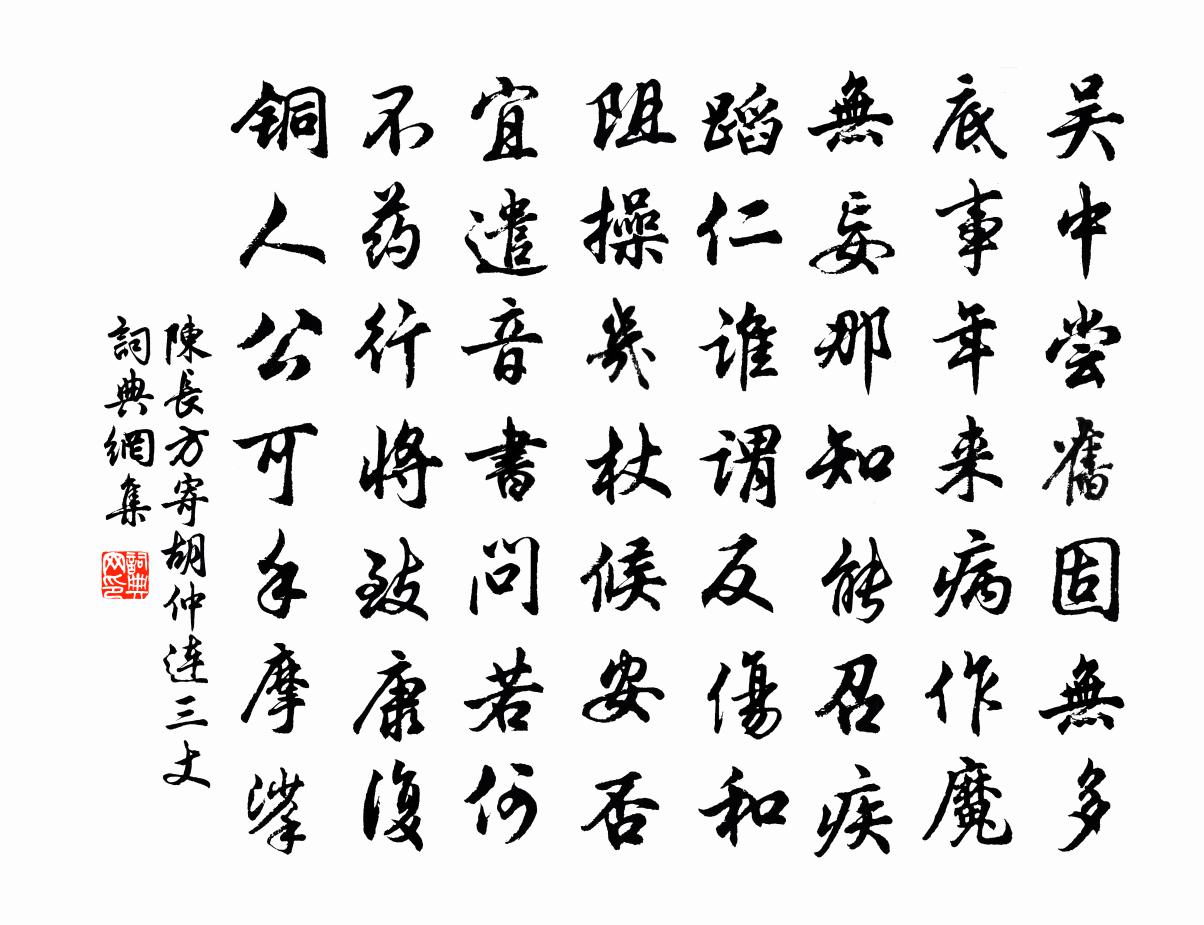 吴中尝舊固無多
底事年来病作魔
無妄那知能召疾
蹈仁谁谓反傷和
阻操几杖候安否
宜遣音書問若何
不药行将致康復
铜人公可手摩挲
陳長方寄胡仲連三丈
詞典網集
詞典网印